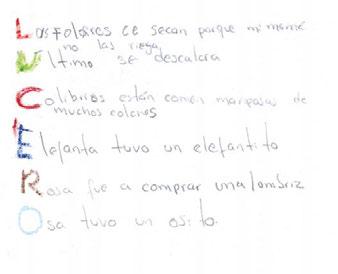 Las Folores ce secan porque mi mamá
no las riega
Ultimo se descalara
Colibiros están comen mariposas de
muchos colores
Elefanta tuvo un elefantito
Rosa fue a comprar una lombriz
Osa tuvo un osito.